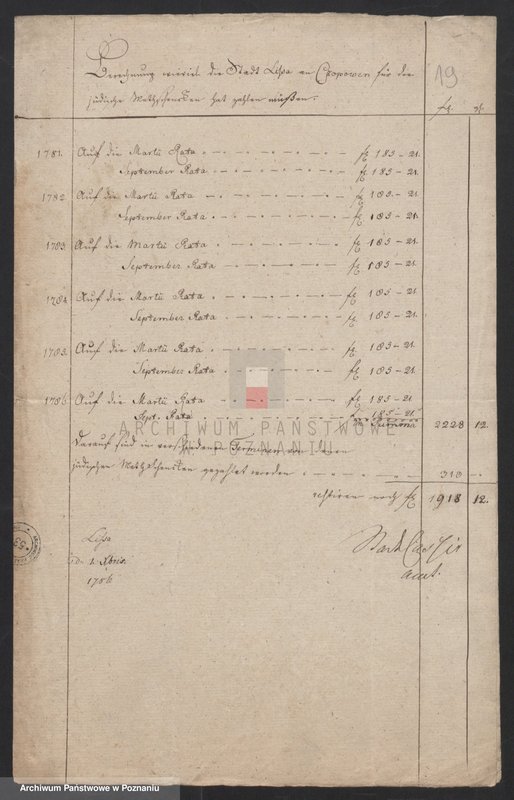 19
Berechnung wieviel die Stadt Lißa an Czopowen für die
jüdische Methschencken hat zahlen müßen.
fl. gl.
1781. Auf die Martii Rata fl 185 - 21.
September Rata fl 185 - 21.
1782. Auf die Martii Rata fl 185 - 21.
September Rata fl 185 - 21.
1783. Auf die Martii Rata fl 185 - 21.
September Rata fl 185 - 21.
1784. Auf die Martii Rata fl 185 - 21.
September Rata fl 185 - 21.
1785. Auf die Martii Rata fl 185 - 21.
September Rata fl 185 - 21.
1786. Auf die Martii Rata fl 185 - 21
Sept. Rata 185 - 21.
Summa 2228 12.
Darauf sind in verschiedenen Terminen von denen
jüdischen Methschencken gezahlet worden 310 -.
restiren noch fl 1918 12.
Lißa
1. Xbris
1786
ARCHIWUM PAŃSTWOWE
W POZNANIU
Archiwum Państwowe w Poznaniu